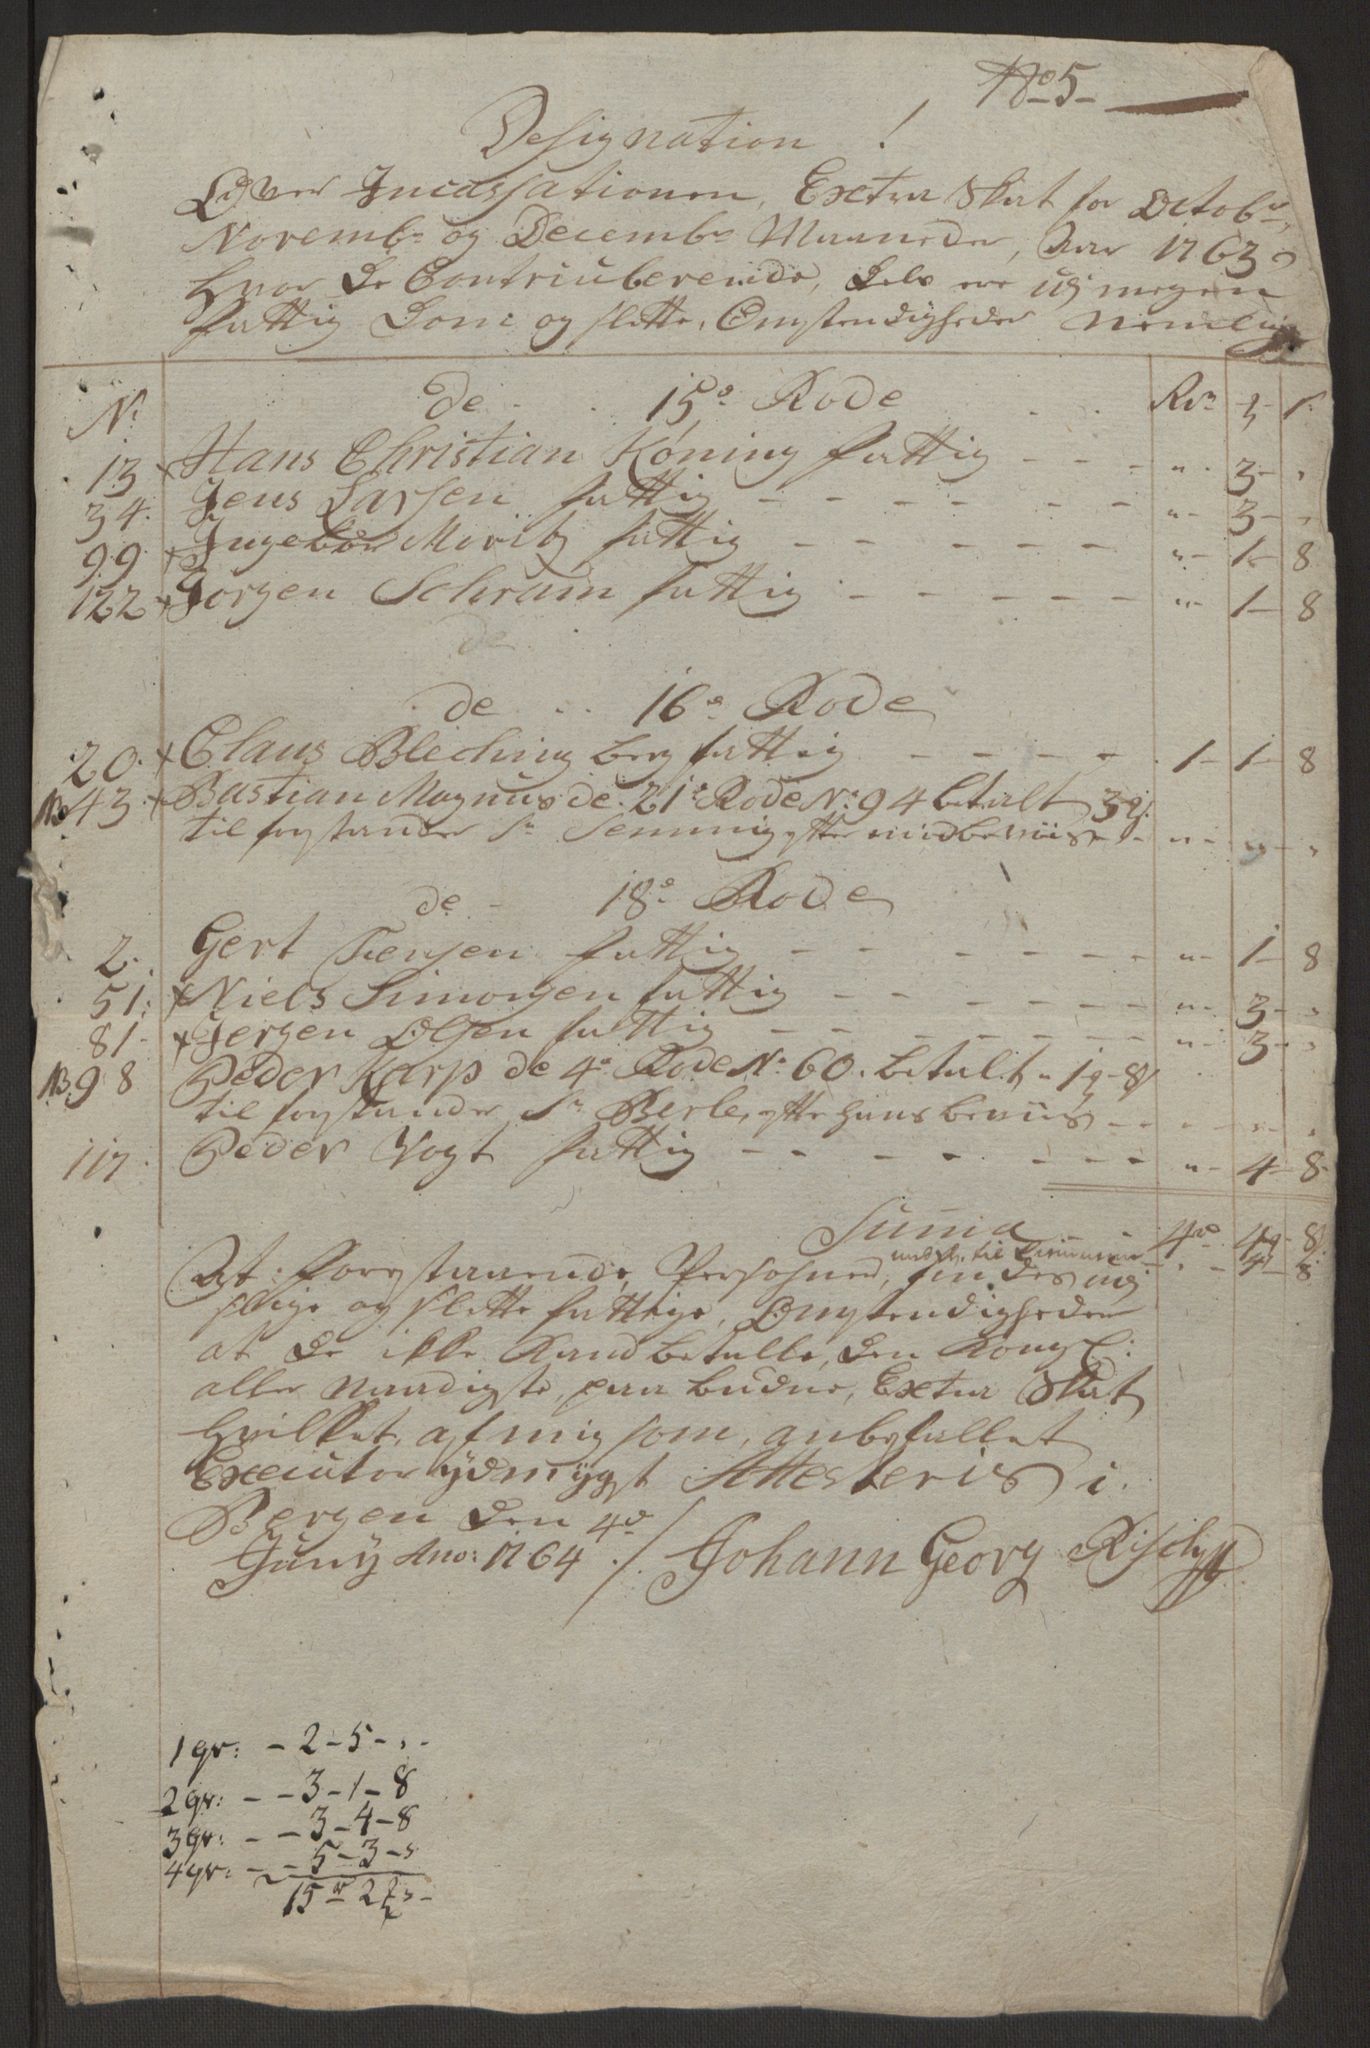 No 5
Designation !
Over Incassationen, Extra Skat for Octobr
Novembr og Decembr Maaneder, Aar 1763
hvor de Contriuberende, dels ere udj megen
fattig Dom og slette Omstendigheder Nemlig
No de 15de Rode Rdr
13 Hans Christian Køning fattig - - - " 3 - "
34 Jens Larsen fattig - - - " 3 - "
99 Ingebor Moritz fattig - - - " 1 - 8
122 Jørgen Schram fattig - - - " 1 - 8
de 16de Rode
20 Claus Bleching berg fattig - - - 1 - 1 - 8
NB 43 Bastian Magnus de 21de Rode No 94 betalt 3
til forstander Sr Semmig efter midbeviis - " - " - "
de 18de Rode
2 Gert Jensen fattig - - - " 1 - 8
51 Niels Simonsen fattig - - - " 3 - "
81 Jergen Olsen fattig - - - " 3 - "
NB 98 Peder Karp de 4de Rode No 60 betalt " 1 - 8
til forstander Sr Berle, efter hans beviis - - -
117 Peder Vogt fattig - - - " 4 - 8
Suma 4 4 8
At forestaaende Persohner, findes udj
slige og slette fattige, Omstendigheder
at de ikke Kand betalle, den Kongl:
aller naadigste, paa budne, Extra Skat
hvilket, af mig som, anbefallet
Executor ydmygst Attesteris i
Bergen den 4de
Juny Ano: 1764 ./. Johann Georg Risch
1 qr: - 2 - 5 - " -
2 qr: - - 3 - 1 - 8
3 qr: - - 3 - 4 - 8
4 qr: - - 5 - 3 - "
15 r 2 " -